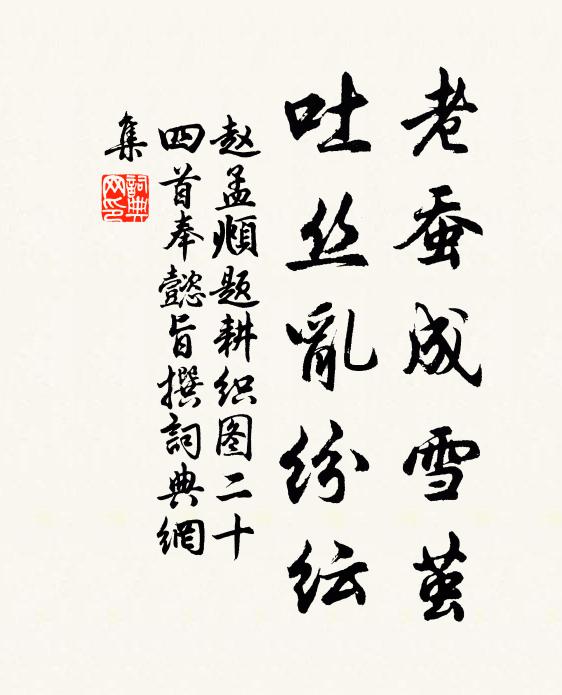 老蚕成雪茧
吐丝亂纷纭
赵孟頫题耕织图二十
四首奉懿旨撰詞典網
集
詞典
网印